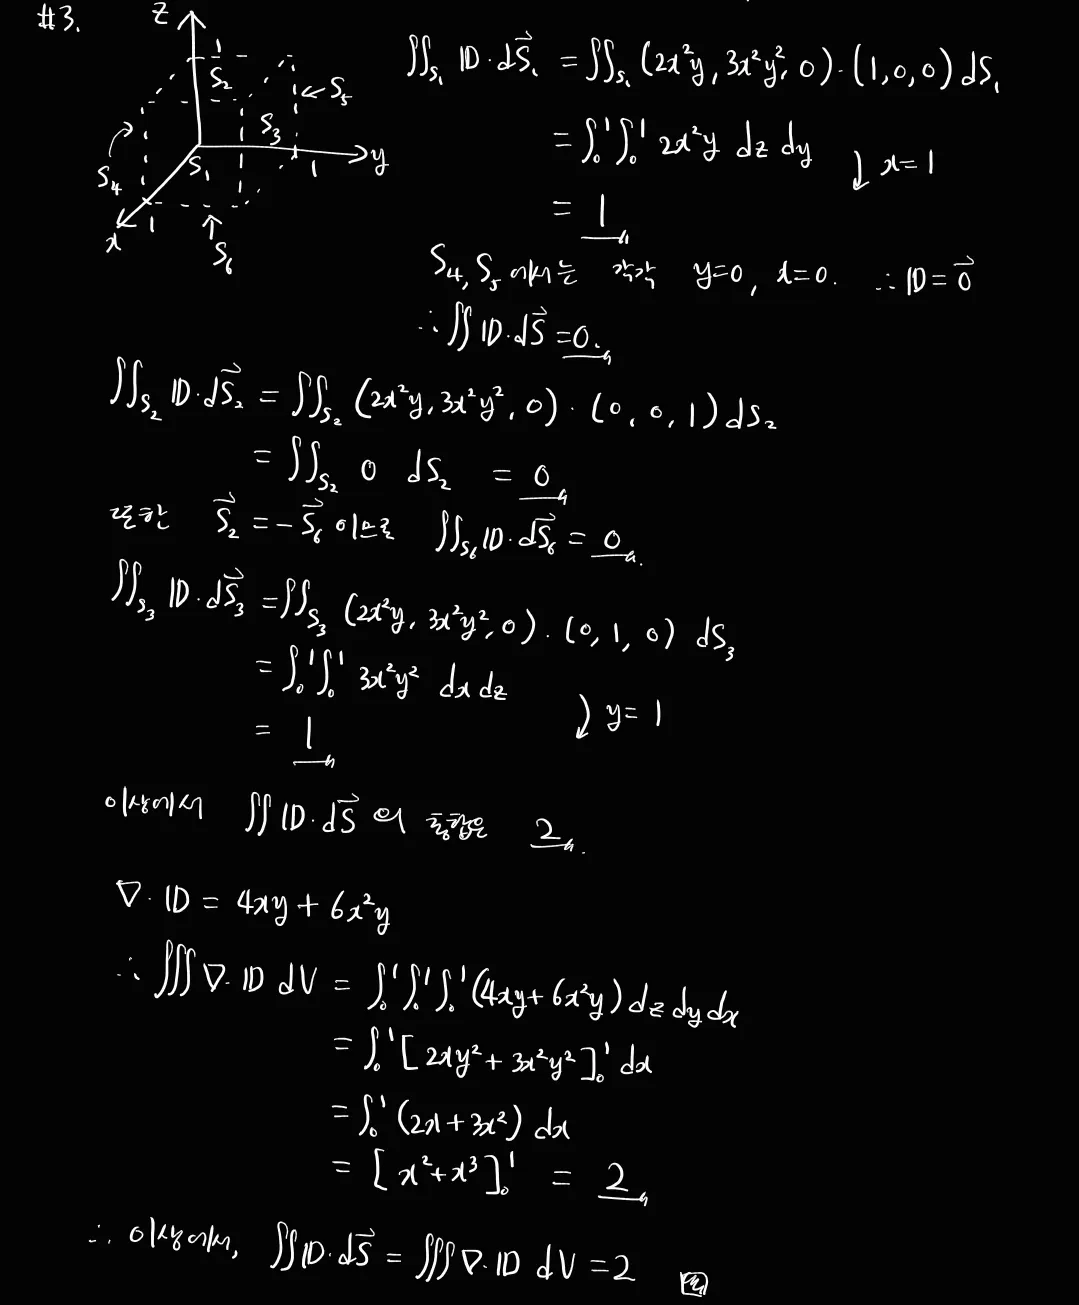 #3.
z
1
S₂
S₅
S₃
S₄
S₁
1
y
1
x
S₆
∬_S₁ 𝔻·dS⃗₁ = ∬_S₁ (2x²y, 3x²y², 0)·(1,0,0) dS₁
= ∫₀¹∫₀¹ 2x²y dz dy
x=1
= 1
S₄, S₅ 에서는 각각 y=0, x=0. ∴ 𝔻 = 0⃗
∴ ∬ 𝔻·dS⃗ = 0.
∬_S₂ 𝔻·dS⃗₂ = ∬_S₂ (2x²y, 3x²y², 0)·(0, 0, 1) dS₂
= ∬_S₂ 0 dS₂ = 0
또한 S⃗₂ = -S⃗₆ 이므로 ∬_S₆ 𝔻·dS⃗₆ = 0.
∬_S₃ 𝔻·dS⃗₃ = ∬_S₃ (2x²y, 3x²y², 0)·(0, 1, 0) dS₃
= ∫₀¹∫₀¹ 3x²y² dx dz
y=1
= 1
이상에서 ∬ 𝔻·dS⃗ 의 총합은 2.
∇·𝔻 = 4xy + 6x²y
∴ ∭ ∇·𝔻 dV = ∫₀¹∫₀¹∫₀¹ (4xy + 6x²y) dz dy dx
= ∫₀¹ [2xy² + 3x²y²]₀¹ dx
= ∫₀¹ (2x + 3x²) dx
= [x² + x³]₀¹ = 2
∴ 이상에서, ∬ 𝔻·dS⃗ = ∭ ∇·𝔻 dV = 2